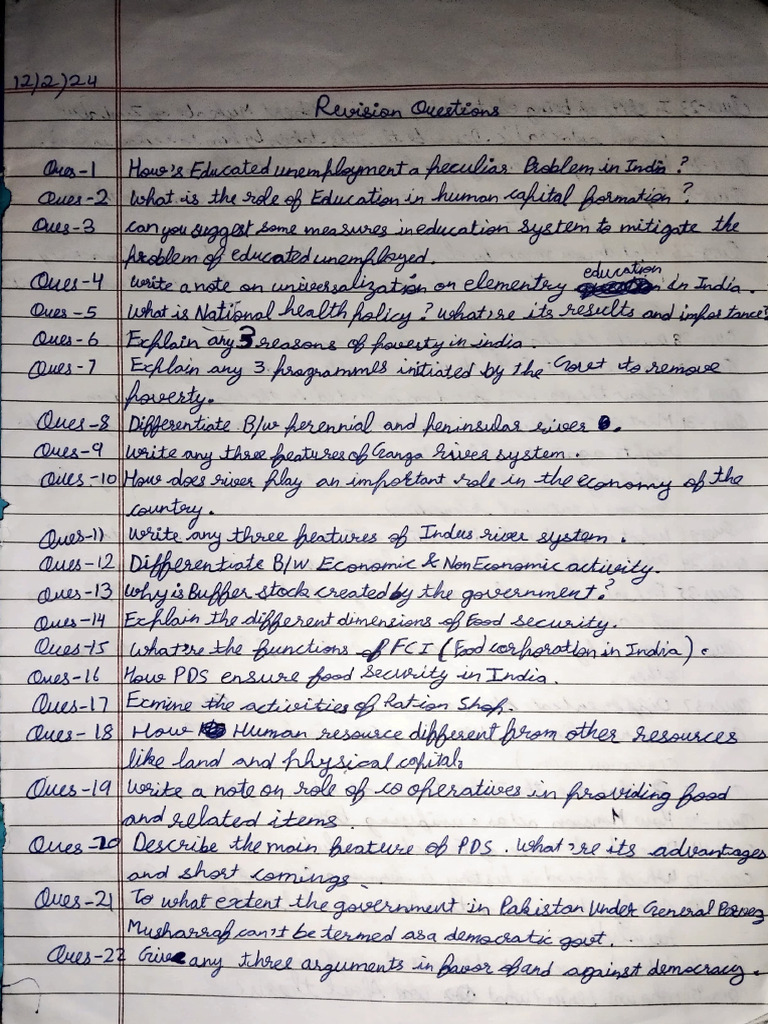 12/2/24
Revision Questions
Ques-1 How's Educated unemployment a peculiar Problem in India ?
Ques-2 What is the role of Education in human capital formation ?
Ques-3 can you suggest some measures in education system to mitigate the
problem of educated unemployed.
Ques-4 Write a note on universalization on elementry education in India.
Ques-5 What is National health policy ? What're its results and importance?
Ques-6 Explain any 3 reasons of poverty in india.
Ques-7 Explain any 3 programmes initiated by the Govt to remove
poverty.
Ques-8 Differentiate B/w perennial and peninsular river.
Ques-9 Write any three features of Ganga River system.
Ques-10 How does river play an important role in the economy of the
country.
Ques-11 Write any three features of Indus river system.
Ques-12 Differentiate B/w Economic & Non Economic activity.
Ques-13 Why is Buffer stock created by the government?
Ques-14 Explain the different dimensions of Food security.
Ques-15 What're the functions of FCI (Food corporation in India).
Ques-16 How PDS ensure food security in India.
Ques-17 Exmine the activities of Ration Shop.
Ques-18 How Human resource different from other resources
like land and physical capital.
Ques-19 Write a note on role of co operatives in providing food
and related items.
Ques-20 Describe the main feature of PDS. What're its advantages
and short comings.
Ques-21 To what extent the government in Pakistan Under General Pervez
Musharraf can't be termed as a democratic govt.
Ques-22 Give any three arguments in favor of and against democracy.